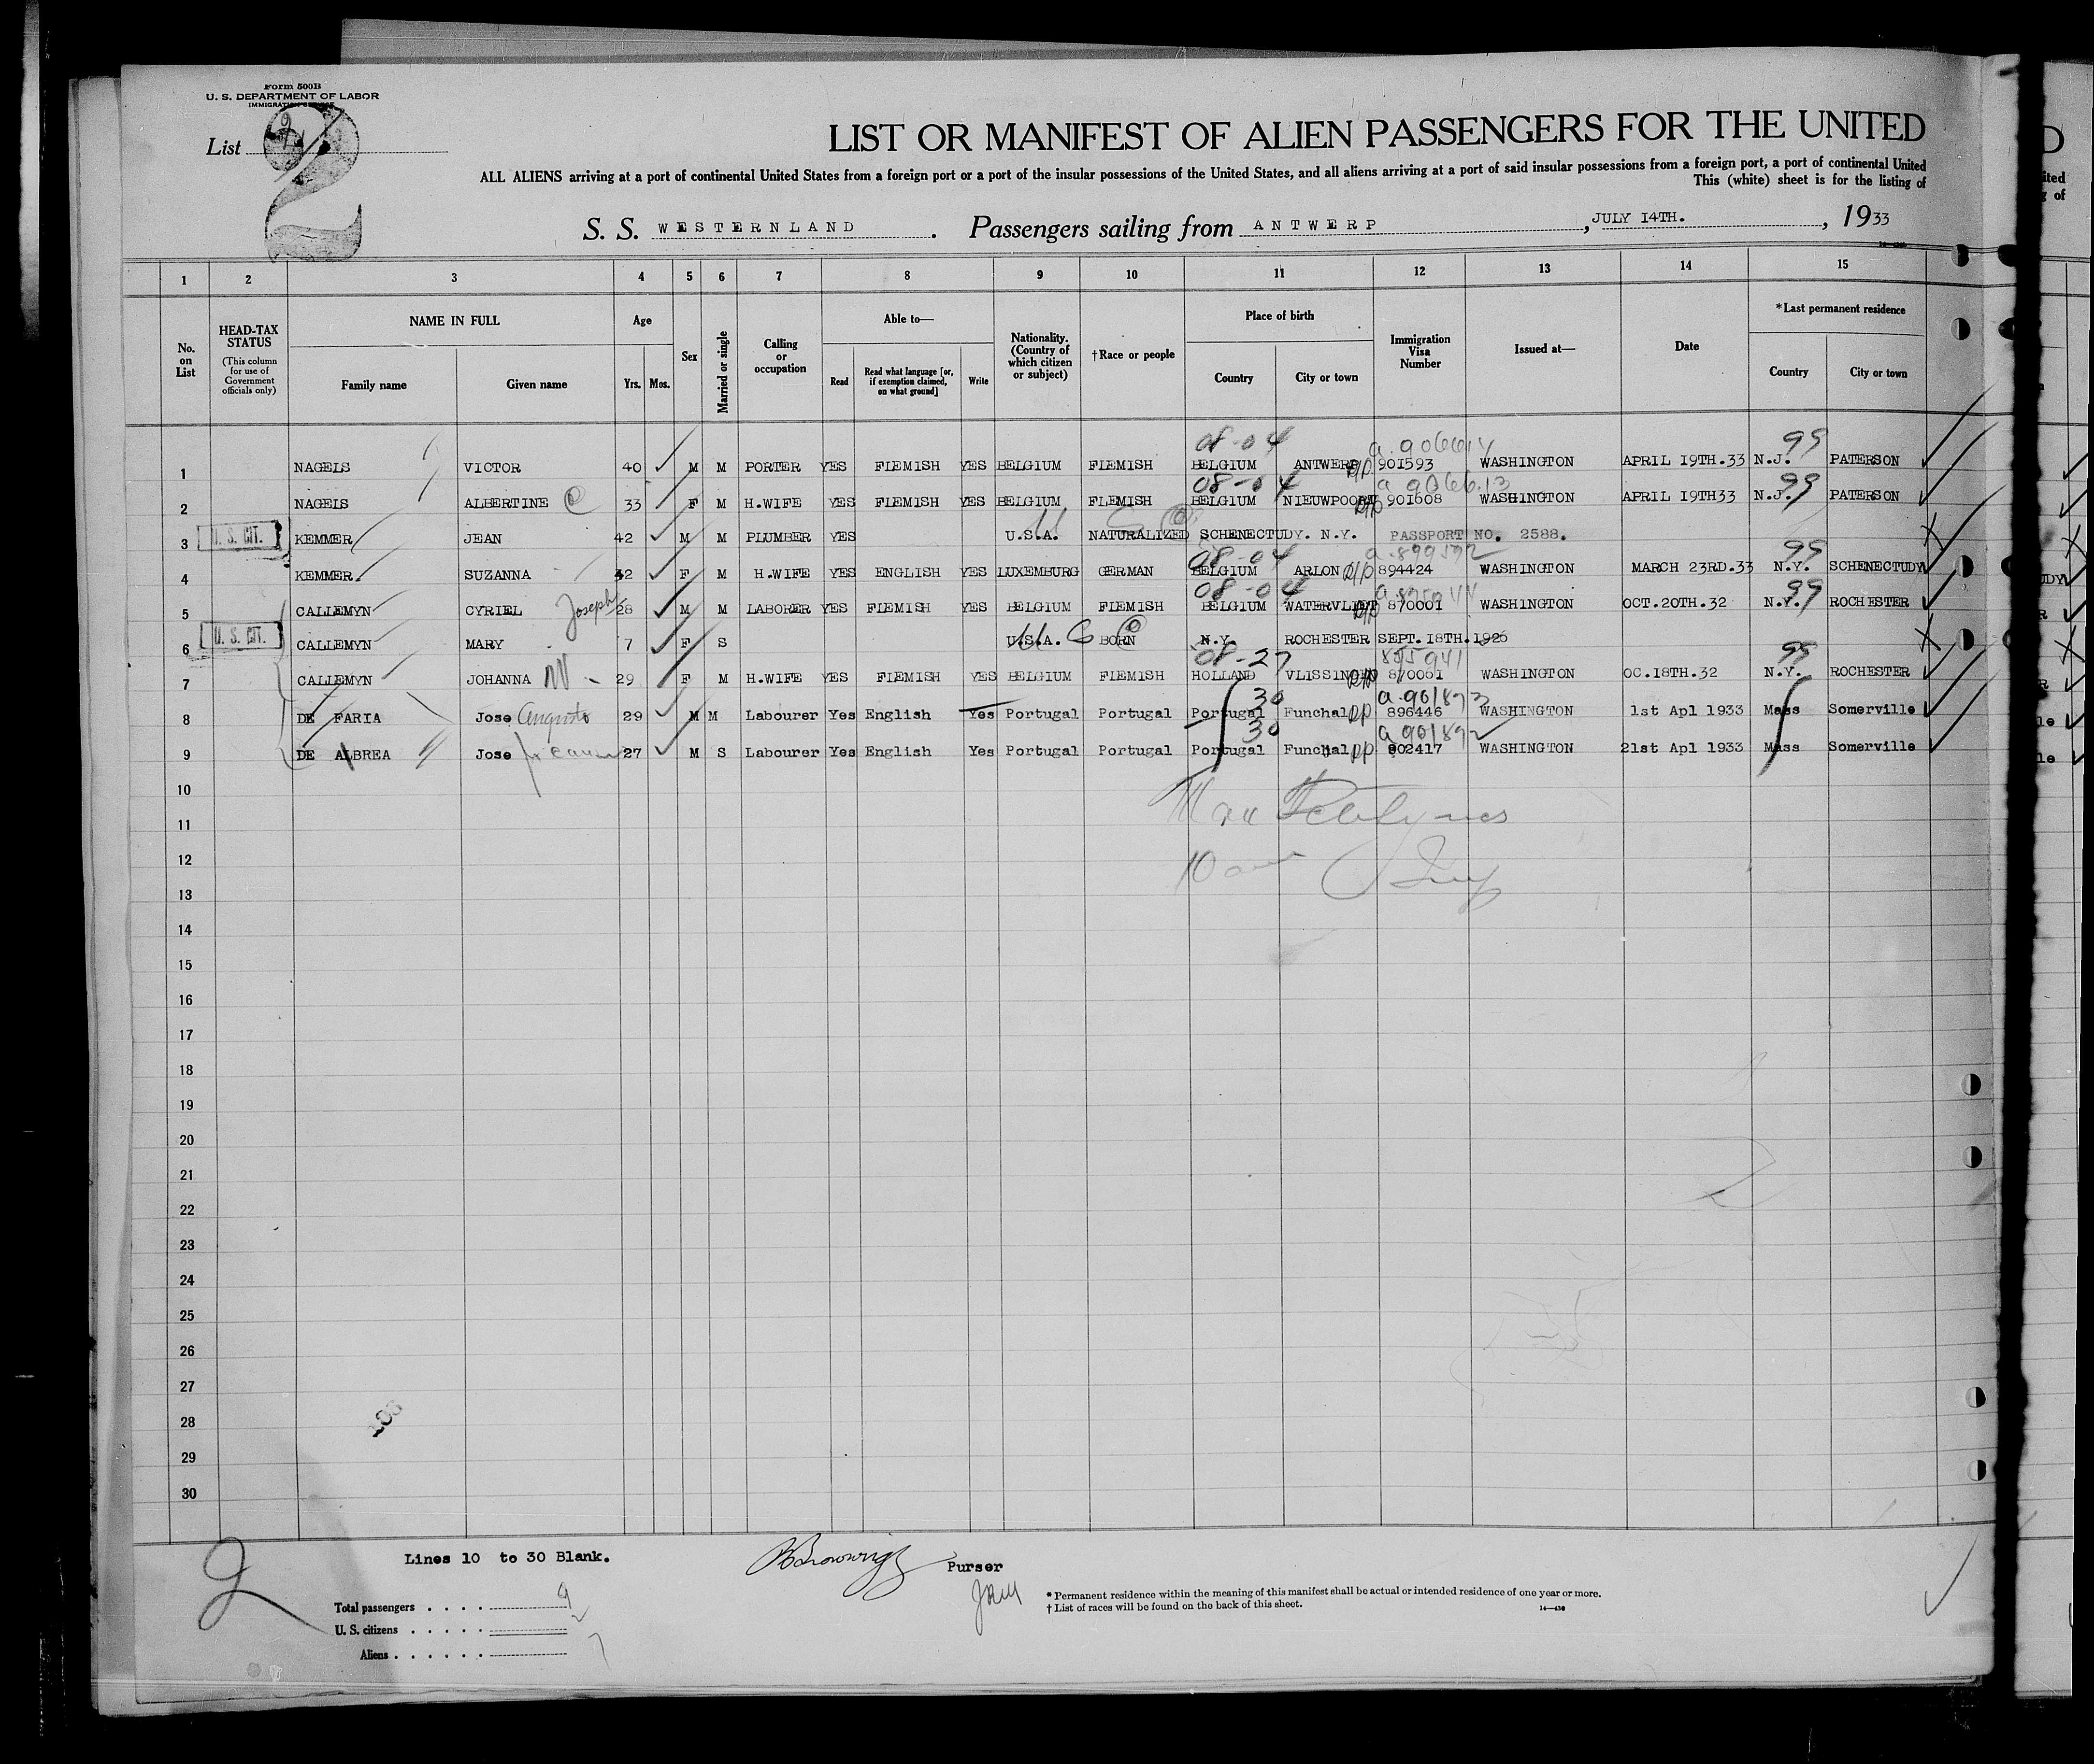 Form 500B
U. S. DEPARTMENT OF LABOR
IMMIGRATION SERVICE
List
2
LIST OR MANIFEST OF ALIEN PASSENGERS FOR THE UNITED
ALL ALIENS arriving at a port of continental United States from a foreign port or a port of the insular possessions of the United States, and all aliens arriving at a port of said insular possessions from a foreign port, a port of continental United
This (white) sheet is for the listing of
S. S. WESTERNLAND. Passengers sailing from ANTWERP, JULY 14TH., 1933
1 2 3 4 5 6 7 8 9 10 11 12 13 14 15
No. on List
HEAD-TAX STATUS
(This column for use of Government officials only)
NAME IN FULL
Family name Given name
Age
Yrs. Mos.
Sex
Married or single
Calling or occupation
Able to—
Read Read what language [or, if exemption claimed, on what ground] Write
Nationality. (Country of which citizen or subject)
†Race or people
Place of birth
Country City or town
Immigration Visa Number
Issued at—
Date
*Last permanent residence
Country City or town
08-04 a.906614 99
1 NAGELS VICTOR 40 M M PORTER YES FLEMISH YES BELGIUM FLEMISH BELGIUM ANTWERP R/P 901593 WASHINGTON APRIL 19TH.33 N.J. PATERSON
08-04 a 906613 99
2 NAGELS ALBERTINE 33 F M H.WIFE YES FLEMISH YES BELGIUM FLEMISH BELGIUM NIEUWPOORT R/P 901608 WASHINGTON APRIL 19TH33 N.J. PATERSON
3 U. S. CIT. KEMMER JEAN 42 M M PLUMBER YES U.S.A. NATURALIZED SCHENECTUDY. N.Y. PASSPORT NO. 2588.
08-04 a.899592 99
4 KEMMER. SUZANNA 42 F M H.WIFE YES ENGLISH YES LUXEMBURG GERMAN BELGIUM ARLON R/P 894424 WASHINGTON MARCH 23RD.33 N.Y. SCHENECTUDY
08-04 99
5 CALLEMYN CYRIEL Joseph 28 M M LABORER YES FLEMISH YES BELGIUM FLEMISH BELGIUM WATERVLIET R/P 870001 WASHINGTON OCT.20TH.32 N.Y. ROCHESTER
6 U. S. CIT. CALLEMYN MARY 7 F S U.S.A. BORN N.Y. ROCHESTER SEPT.18TH.1926
08-27 99
7 CALLEMYN JOHANNA 29 F M H.WIFE YES FLEMISH YES BELGIUM FLEMISH HOLLAND VLISSINGEN R/P 870061 WASHINGTON OC.18TH.32 N.Y. ROCHESTER
30 a.901893
8 DE FARIA Jose Augusto 29 M M Labourer Yes English Yes Portugal Portugal Portugal Funchal R/P 896446 WASHINGTON 1st Apl 1933 Mass Somerville
30 a 901892
9 DE ALBREA Jose 27 M S Labourer Yes English Yes Portugal Portugal Portugal Funchal R/P 902417 WASHINGTON 21st Apl 1933 Mass Somerville
10
11
12
13
14
15
16
17
18
19
20
21
22
23
24
25
26
27
28
29
30
2
Lines 10 to 30 Blank.
Purser
Total passengers 9
U. S. citizens 2
Aliens 7
* Permanent residence within the meaning of this manifest shall be actual or intended residence of one year or more.
† List of races will be found on the back of this sheet.
14—430